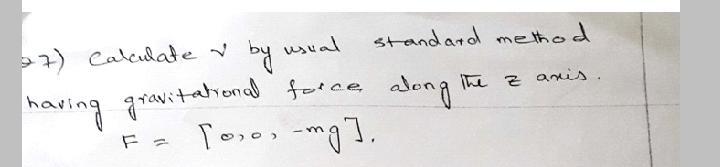 27) Calculate v by usual standard method
having gravitational force along the z axis.
F = [0,0, -mg].